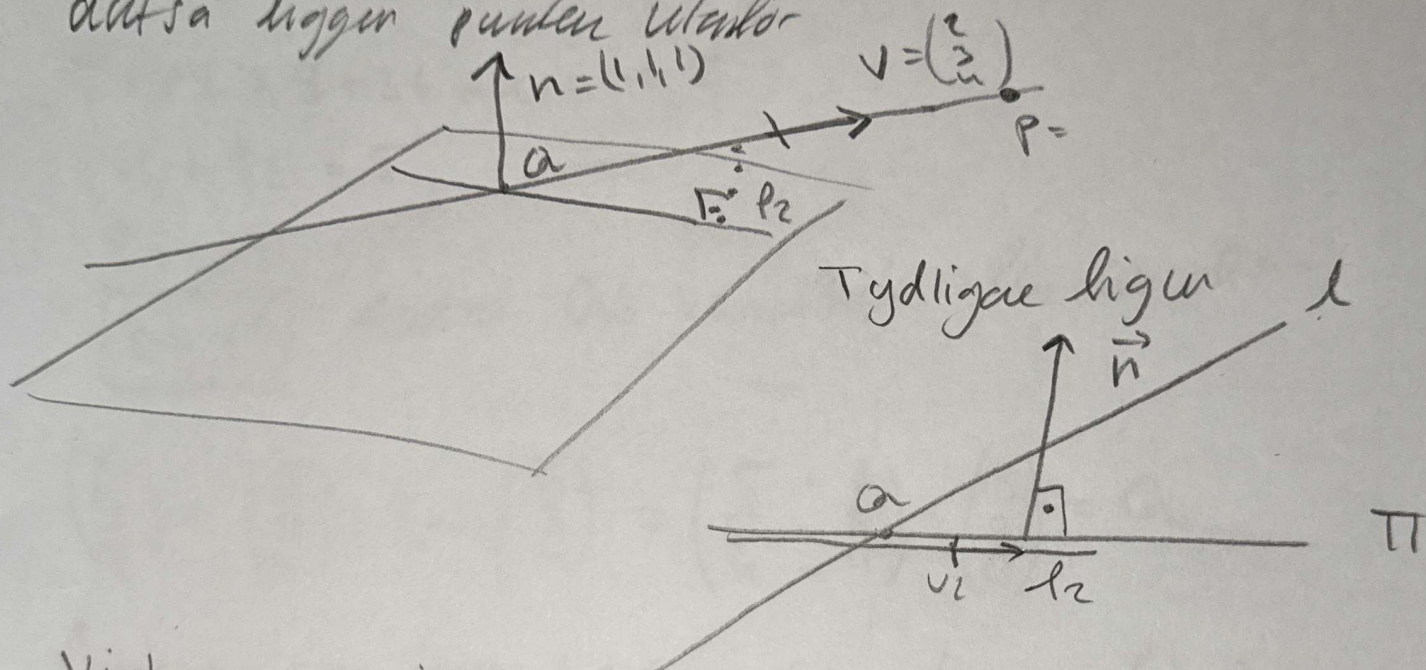 ligger punkten utanför
n=(1,1,1)
v=(2 3 4)
p=
a
l₂
Tydligare
l
n⃗
a
π
v₂
l₂